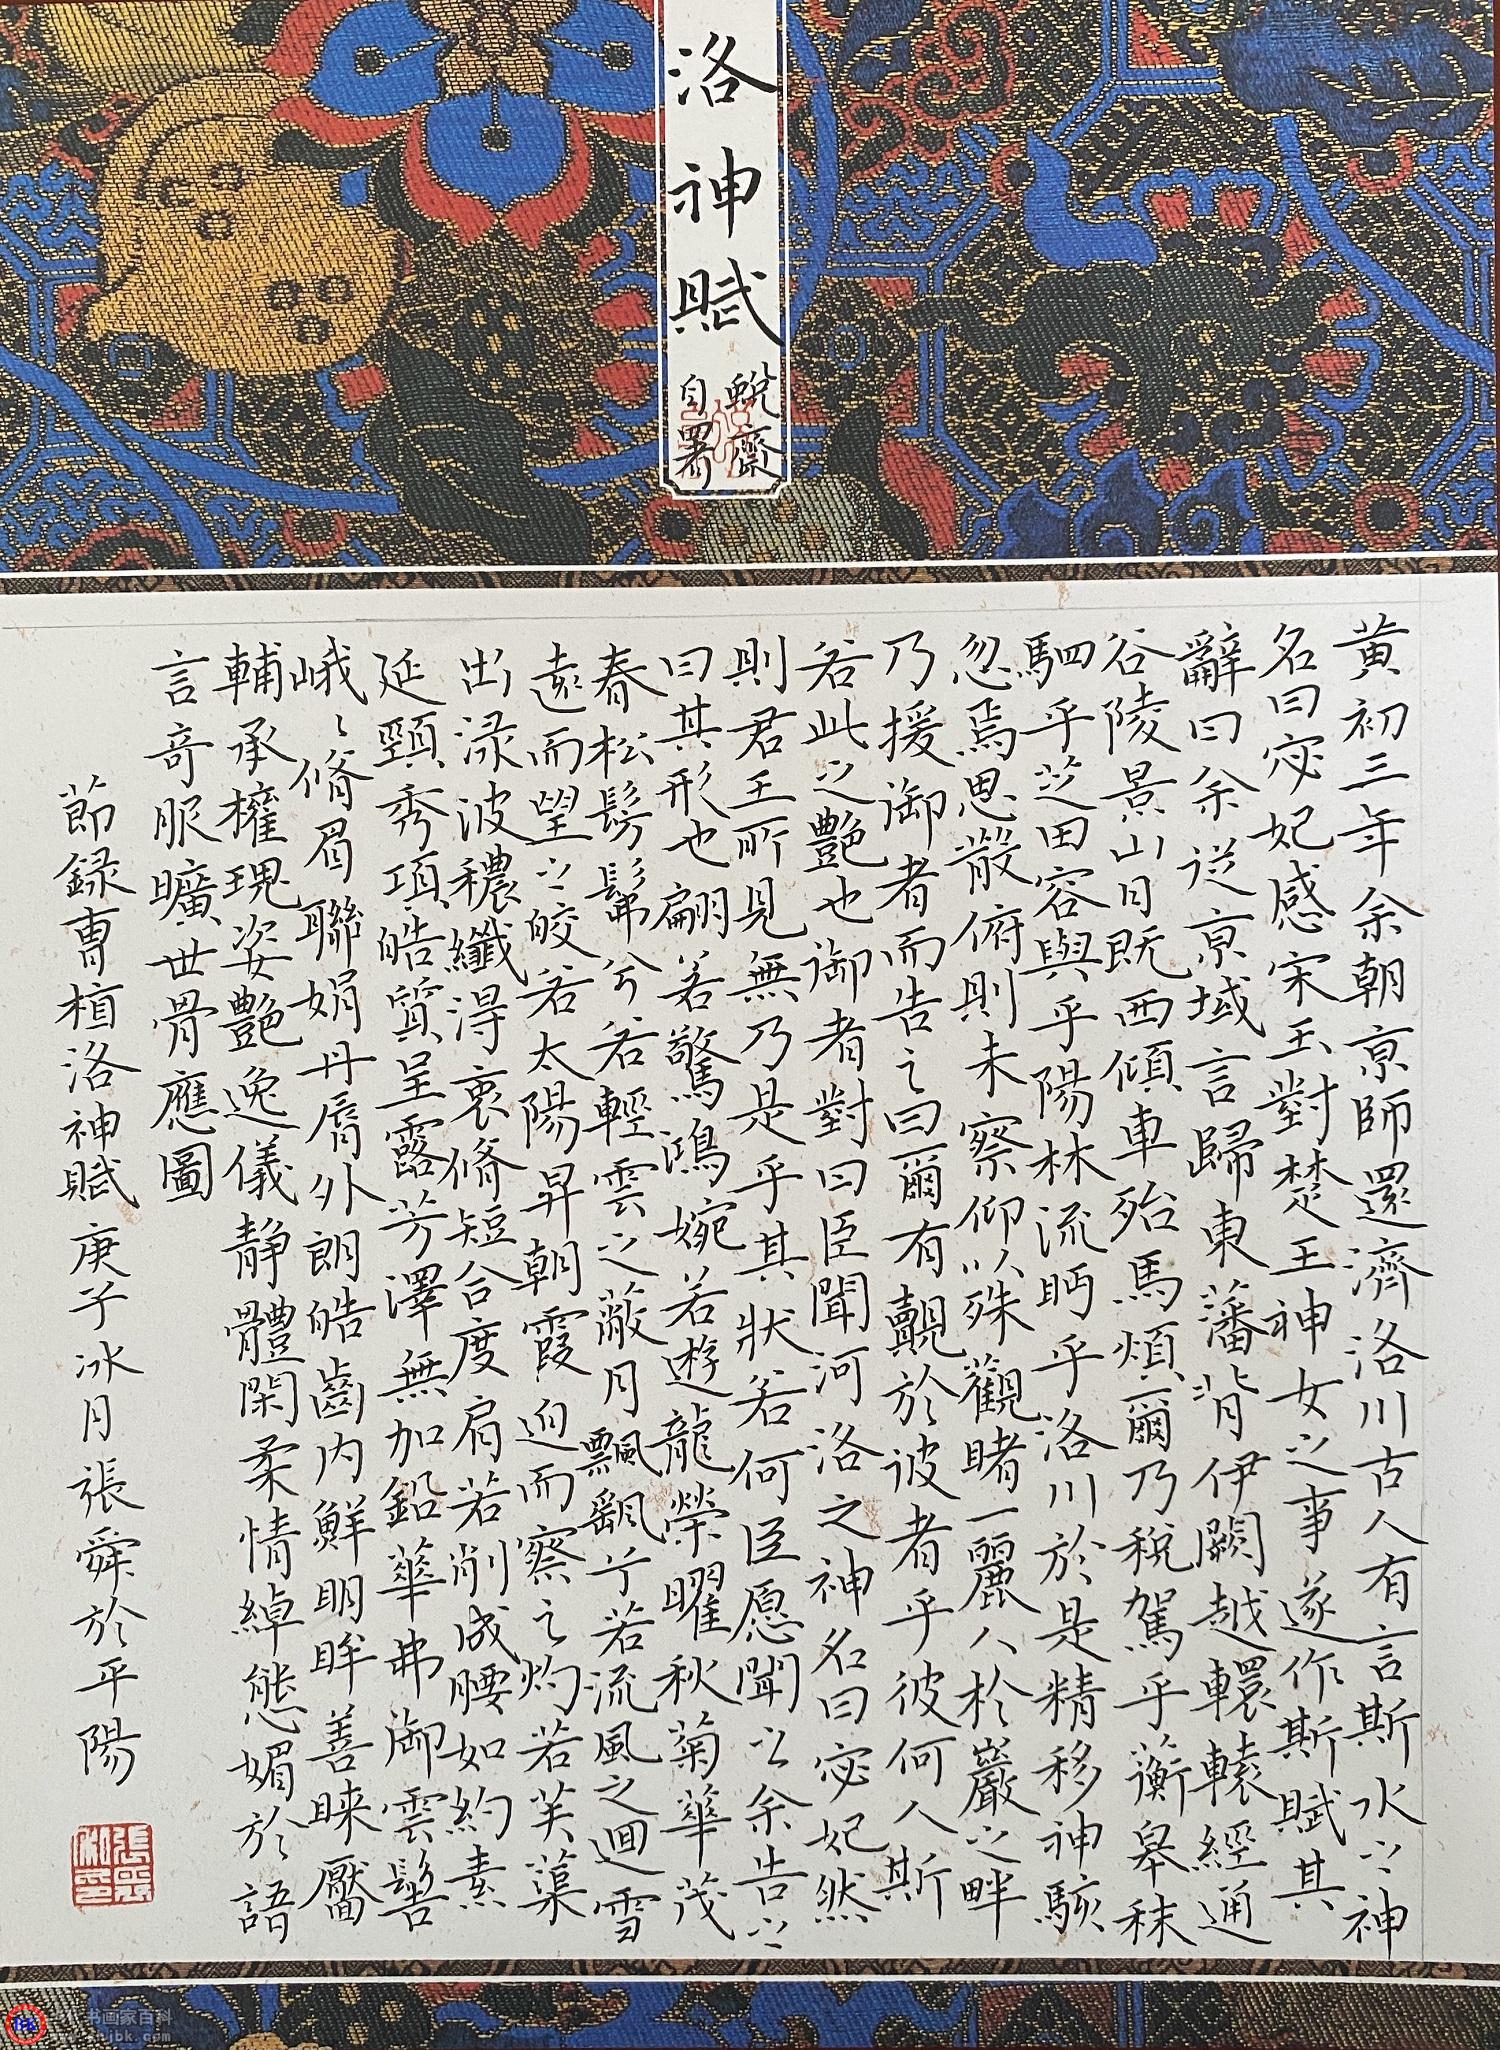 洛神賦
蜕齋
自署
黄初三年余朝京師還濟洛川古人有言斯水之神
名曰宓妃感宋玉對楚王神女之事遂作斯賦其
辭曰余從京域言歸東藩背伊闕越轘轅經通
谷陵景山日既西傾車殆馬煩爾乃税駕乎蘅皋秣
駟乎芝田容與乎陽林流眄乎洛川於是精移神駭
忽焉思散俯則未察仰以殊觀睹一麗人於巖之畔
乃援御者而告之曰爾有覿於彼者乎彼何人斯
若此之艷也御者對曰臣聞河洛之神名曰宓妃然
則君王所見無乃是乎其狀若何臣愿聞之余告之
曰其形也翩若驚鴻婉若遊龍榮曜秋菊華茂
春松髣髴兮若輕雲之蔽月飄飖兮若流風之迴雪
遠而望之皎若太陽昇朝霞迫而察之灼若芙蕖
出渌波穠纖得衷脩短合度肩若削成腰如約素
延頸秀項皓質呈露芳澤無加鉛華弗御雲髻
峨峨脩眉聯娟丹脣外朗皓齒内鮮明眸善睞靨
輔承權瑰姿艷逸儀静體閑柔情綽態媚於語
言奇服曠世骨應圖
節録曹植洛神賦庚子冰月張舜於平陽
书画家百科